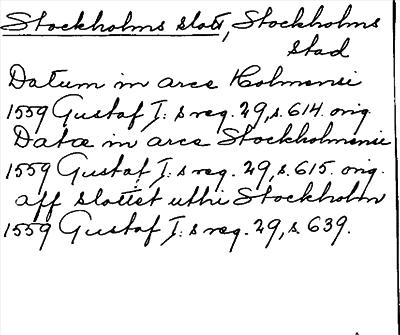 Stockholms slott, Stockholms
stad
Datum in arce Holmensi
1559 Gustaf I: s reg. 29, s. 614. orig.
Datæ in arce Stockholmensi
1559 Gustaf I: s reg. 29, s. 615. orig.
aff slottet uthi Stockholm
1559 Gustaf I: s reg. 29, s. 639.